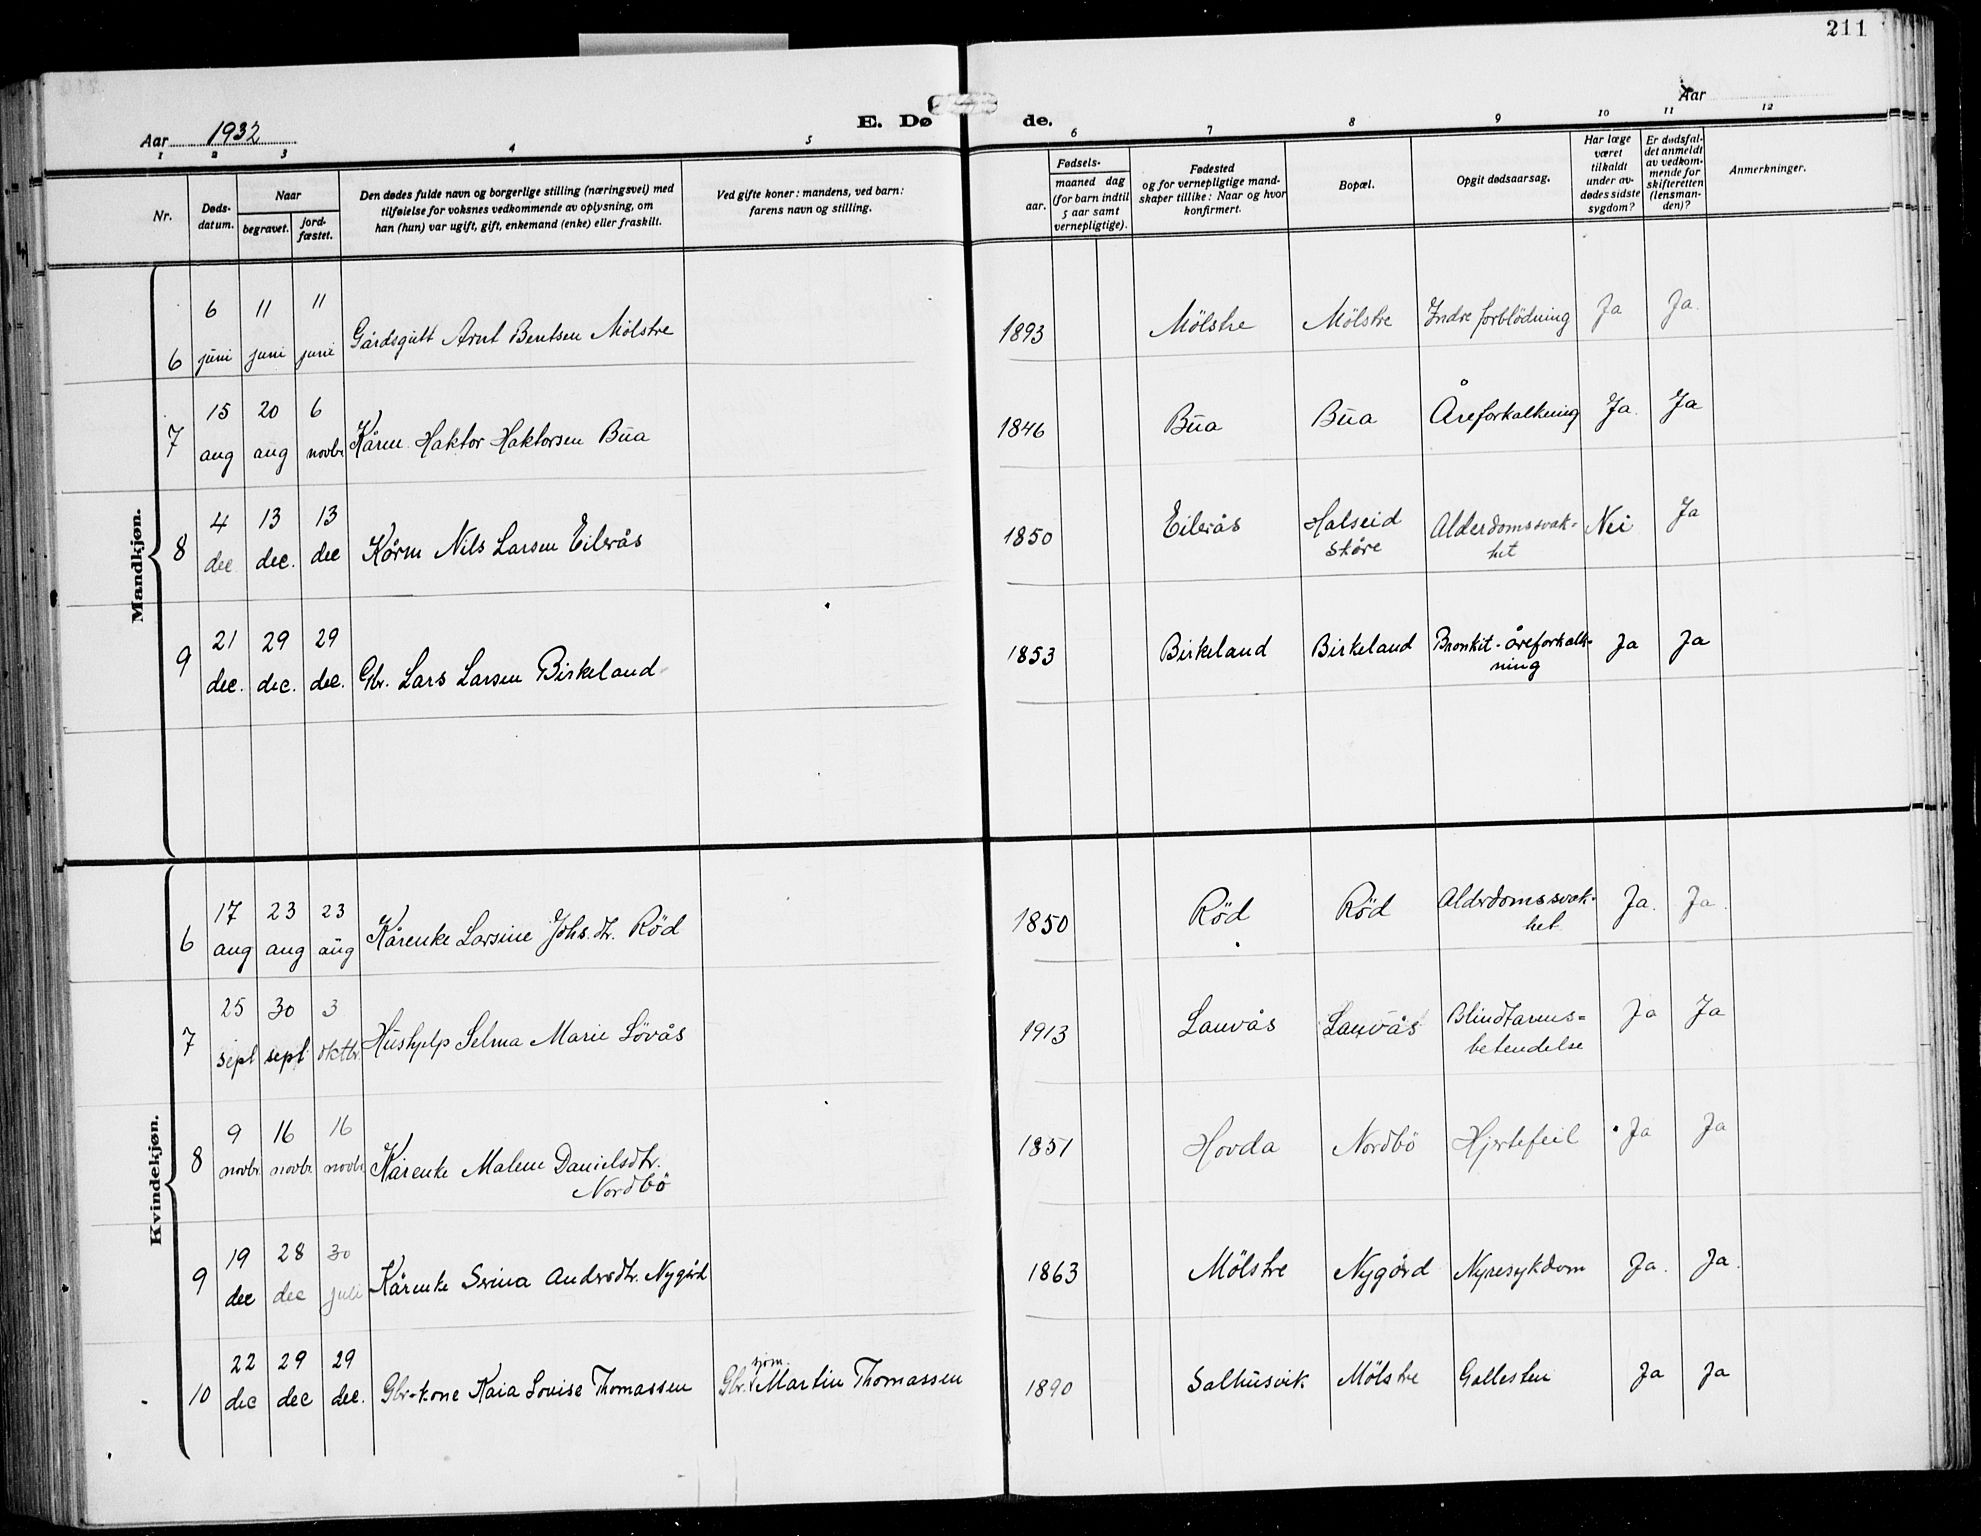 211
Aar 1932
E. Døde.
Aar
1 2 3 4 5 6 7 8 9 10 11 12
Nr.
Døds-
datum.
Naar
begravet.
jord-
fæstet.
Den dødes fulde navn og borgerlige stilling (næringsvei) med
tilføielse for voksnes vedkommende av oplysning, om
han (hun) var ugift, gift, enkemand (enke) eller fraskilt.
Ved gifte koner: mandens, ved barn:
farens navn og stilling.
Fødsels-
aar.
maaned dag
(for barn indtil
5 aar samt
vernepligtige).
Fødested
og for vernepligtige mand-
skaper tillike: Naar og hvor
konfirmert.
Bopæl.
Opgit dødsaarsag.
Har læge
været
tilkaldt
under av-
dødes sidste
sygdom?
Er dødsfal-
det anmeldt
av vedkom-
mende for
skifteretten
(lensman-
den)?
Anmerkninger.
Mandkjøn.
6 6 juni 11 juni 11 juni Gårdsgutt Arnt Bentsen Mölstre 1893 Mölstre Mölstre Indre forblödning Ja Ja.
7 15 aug 20 aug 6 novbr Kårm. Haktor Haktorsen Bua 1846 Bua Bua Åreforkalkning Ja. Ja
8 4 dec 13 dec. 13 dec Kårm Nils Larsen Eilerås 1850 Eilerås Halseid støre Alderdomssvak-
het Nei Ja
9 21 dec. 29 dec. 29 dec. Gbr. Lars Larsen Birkeland 1853 Birkeland Birkeland Bronkit-åreforkalk-
ning Ja Ja
Kvindekjøn.
6 17 aug 23 aug 23 aug Kårenke Larsine Johs.dtr. Röd 1850 Röd Röd Alderdomssvak-
het Ja. Ja.
7 25 sept 30 sept 3 oktbr. Hushjelp Selma Marie Lövås 1913 Lauvås Lauvås Blindtarms=
betendelse Ja Ja
8 9 novbr. 16 novbr. 16 novbr. Kårenke Malene Danielsdtr.
Nordbö 1851 Hovda Nordbö Hjertefeil Ja Ja
9 19 dec 28 dec 30 juli Kårenke Serina Andersdtr. Nygård 1863 Mölstre Nygård Nyresykdom Ja. Ja.
10 22 dec 29 dec 29 dec. Gbr-kone Kaia Louise Thomassen Gbr. sjöm. Martin Thomassen 1890 Salhusvik Mölstre Gallesten Ja Ja